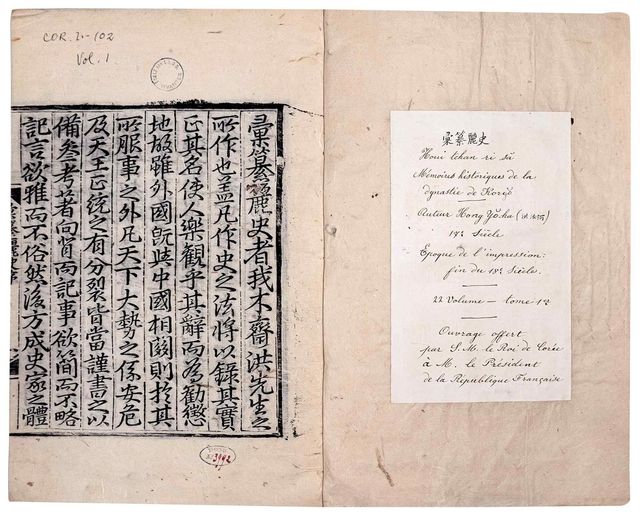 COR. 2.-102
Vol. 1
彙纂麗史者我木齋洪先生之
所作也盖凡作史之法將以錄其實
正其名使人樂觀乎其辭而爲勸懲
地故雖外國旣與中國相關則於其
所服事之外凡天下大勢之係安危
及天王正統之有分裂皆當謹書之以
備叅考者 記事欲簡而不略
記言欲雅而不俗然後方成史家之體
3992
彙纂麗史
Houi tchan ri să
Mémoires historiques de la
dynastie de Korië
Auteur Hong Yŏ-ha (洪汝河)
17e Siècle
Epoque de l'impression:
fin du 18e Siècle.
22 Volume — tome 1er
Ouvrage offert
par S. M. le Roi de Corée
à M. le Président
de la République Française